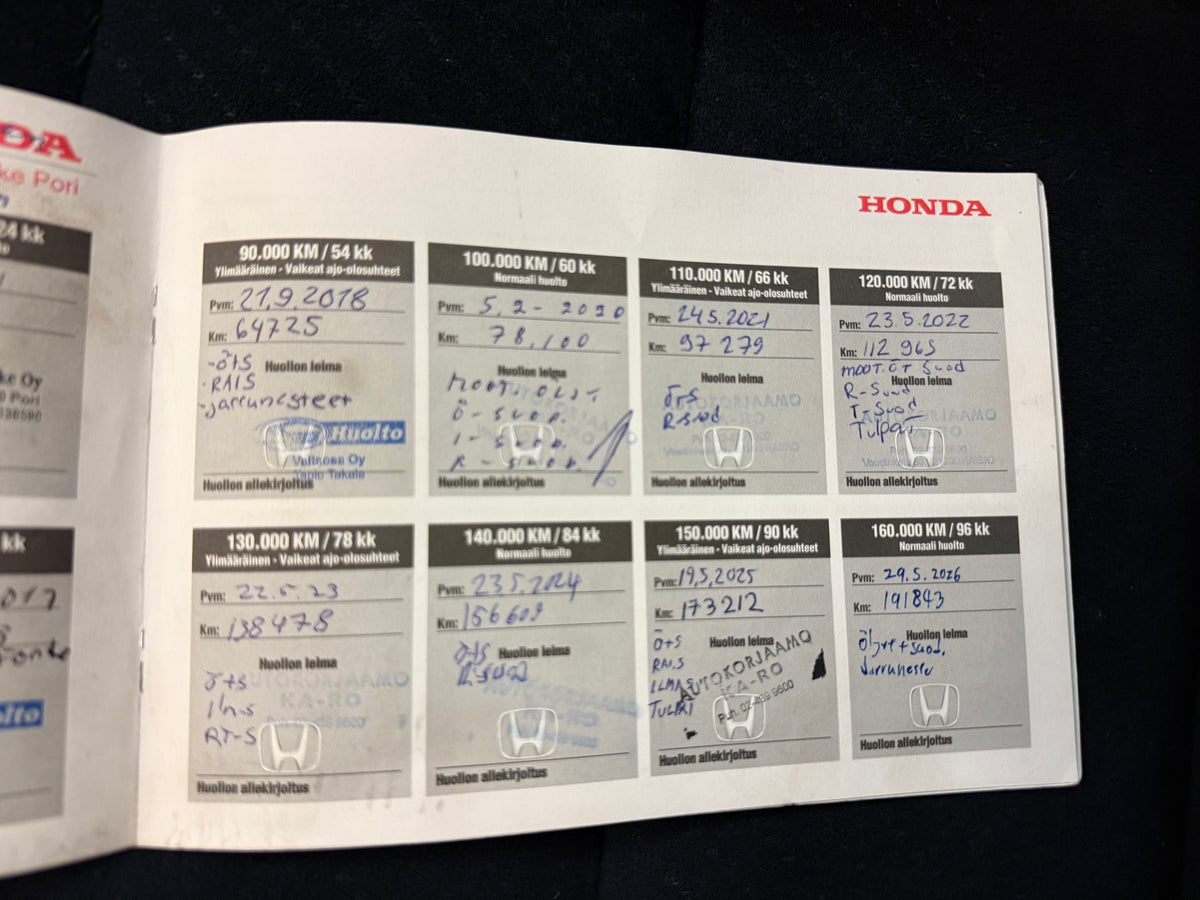 DA
ke Pori
24 kk
ke Oy
0 Pori
kk
HONDA
90.000 KM / 54 kk
Ylimääräinen - Vaikeat ajo-olosuhteet
Pvm: 21.9.2018
Km: 64725
Huollon leima
-Ö+S
-RAIS
-Jarrunesteet
Huolto
Velinosa Oy
Tapio Takala
Huollon allekirjoitus
100.000 KM / 60 kk
Normaali huolto
Pvm: 5.2-2020
Km: 78.100
Huollon leima
Ö-suod.
R-suod.
Huollon allekirjoitus
110.000 KM / 66 kk
Ylimääräinen - Vaikeat ajo-olosuhteet
Pvm: 24.5.2021
Km: 97 279
Huollon leima
Ö+S
R-suod
Huollon allekirjoitus
120.000 KM / 72 kk
Normaali huolto
Pvm: 23.5.2022
Km: 112 965
Huollon leima
MOOT.ÖT Suod
R-Suod
T-Suod
Tulpat
Huollon allekirjoitus
130.000 KM / 78 kk
Ylimääräinen - Vaikeat ajo-olosuhteet
Pvm: 22.5.23
Km: 138478
Huollon leima
Ö+S
Ilm-S
RT-S
AUTOKORJAAMO
KA-RO
Huollon allekirjoitus
140.000 KM / 84 kk
Normaali huolto
Pvm: 23.5.2024
Km: 156609
Huollon leima
Ö+S
R.SUOD
AUTOKORJAAMO
Huollon allekirjoitus
150.000 KM / 90 kk
Ylimääräinen - Vaikeat ajo-olosuhteet
Pvm: 19,5,2025
Km: 173212
Huollon leima
Ö+S
RN.S
ILMAS
TULPAT
AUTOKORJAAMO
KA-RO
Puh. 02-439 9600
Huollon allekirjoitus
160.000 KM / 96 kk
Normaali huolto
Pvm: 29.5.2026
Km: 191843
Huollon leima
Öljyt + suod,
Jarruneste
Huollon allekirjoitus